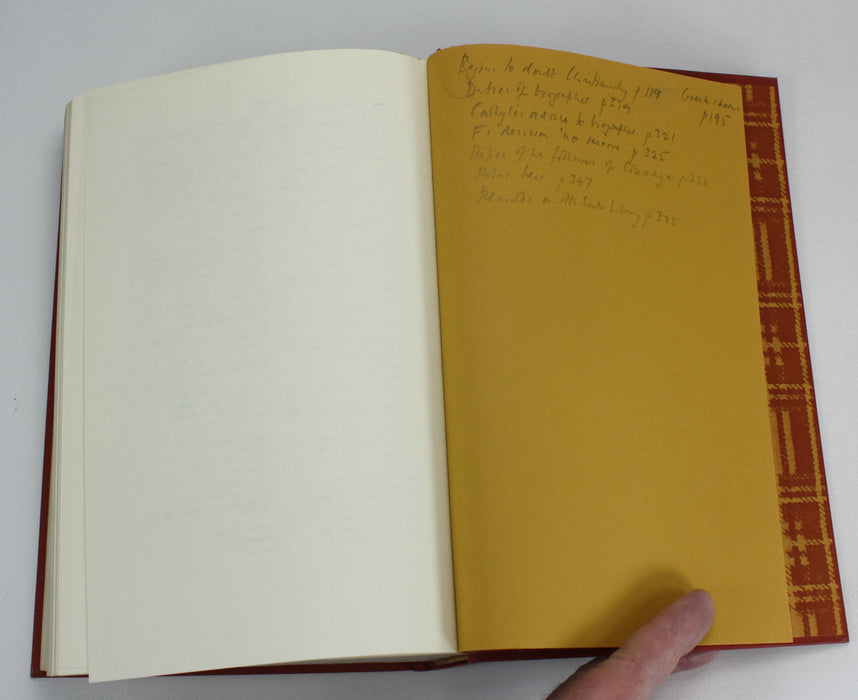 Begins to doubt Christianity p 119
Greek chorus p 195
Duties of biographer p 314
Carlyle's advice to biographer p 321
F's decision 'no reserve' p 325
Hopes of the followers of Coleridge p 338
Polar bear p 347
Remarks on All Souls Library p 375